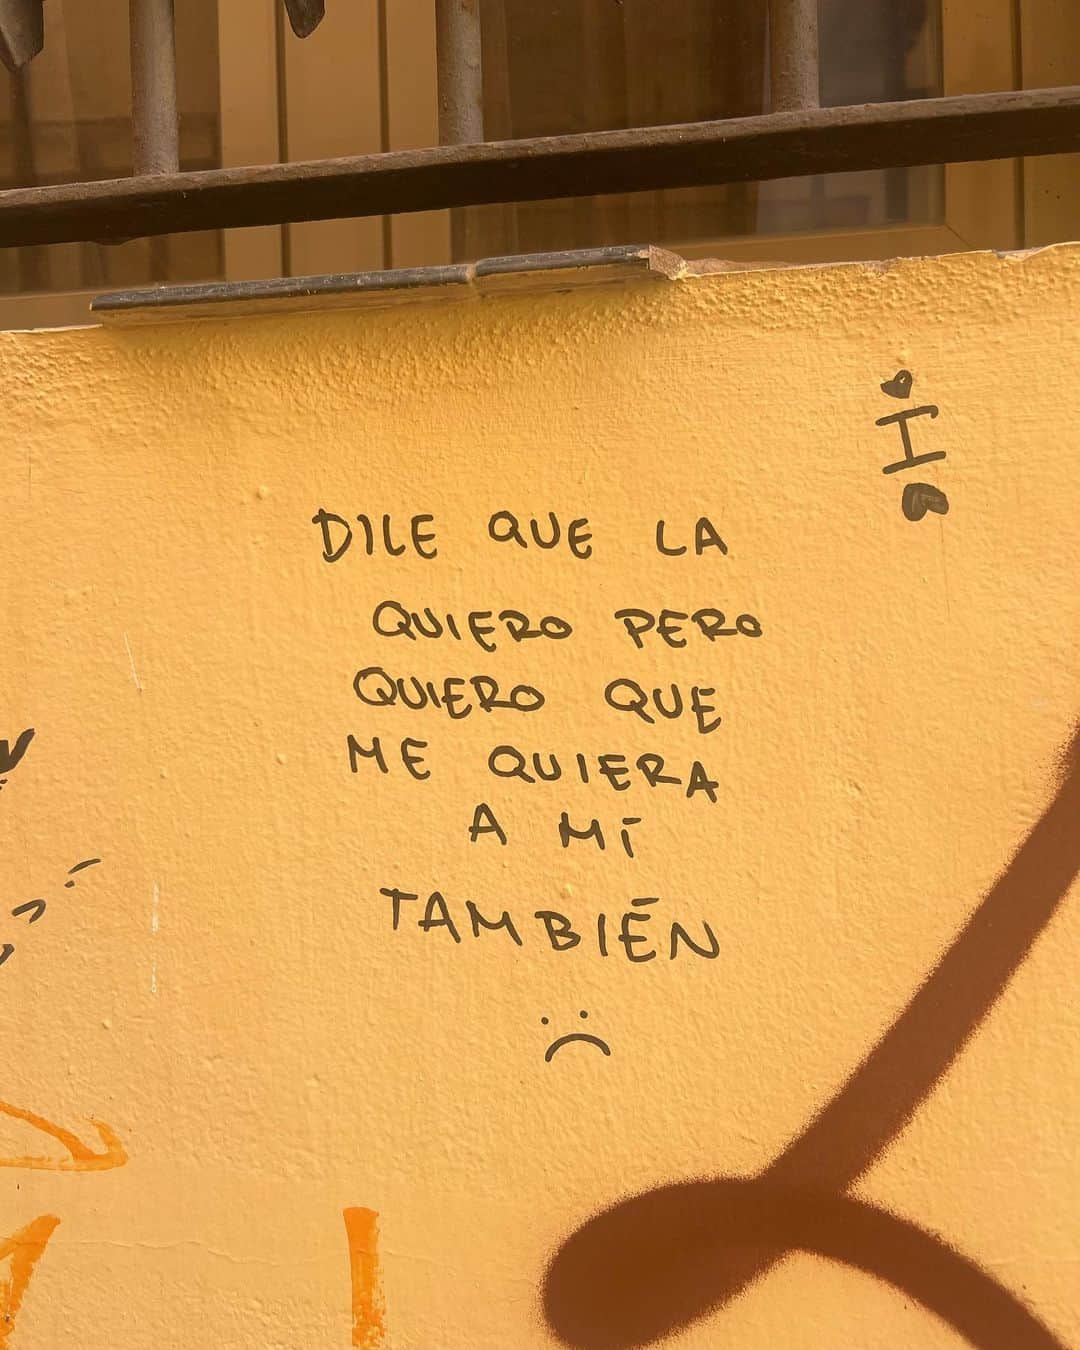 DILE QUE LA
QUIERO PERO
QUIERO QUE
ME QUIERA
A MÍ
TAMBIÉN
:(